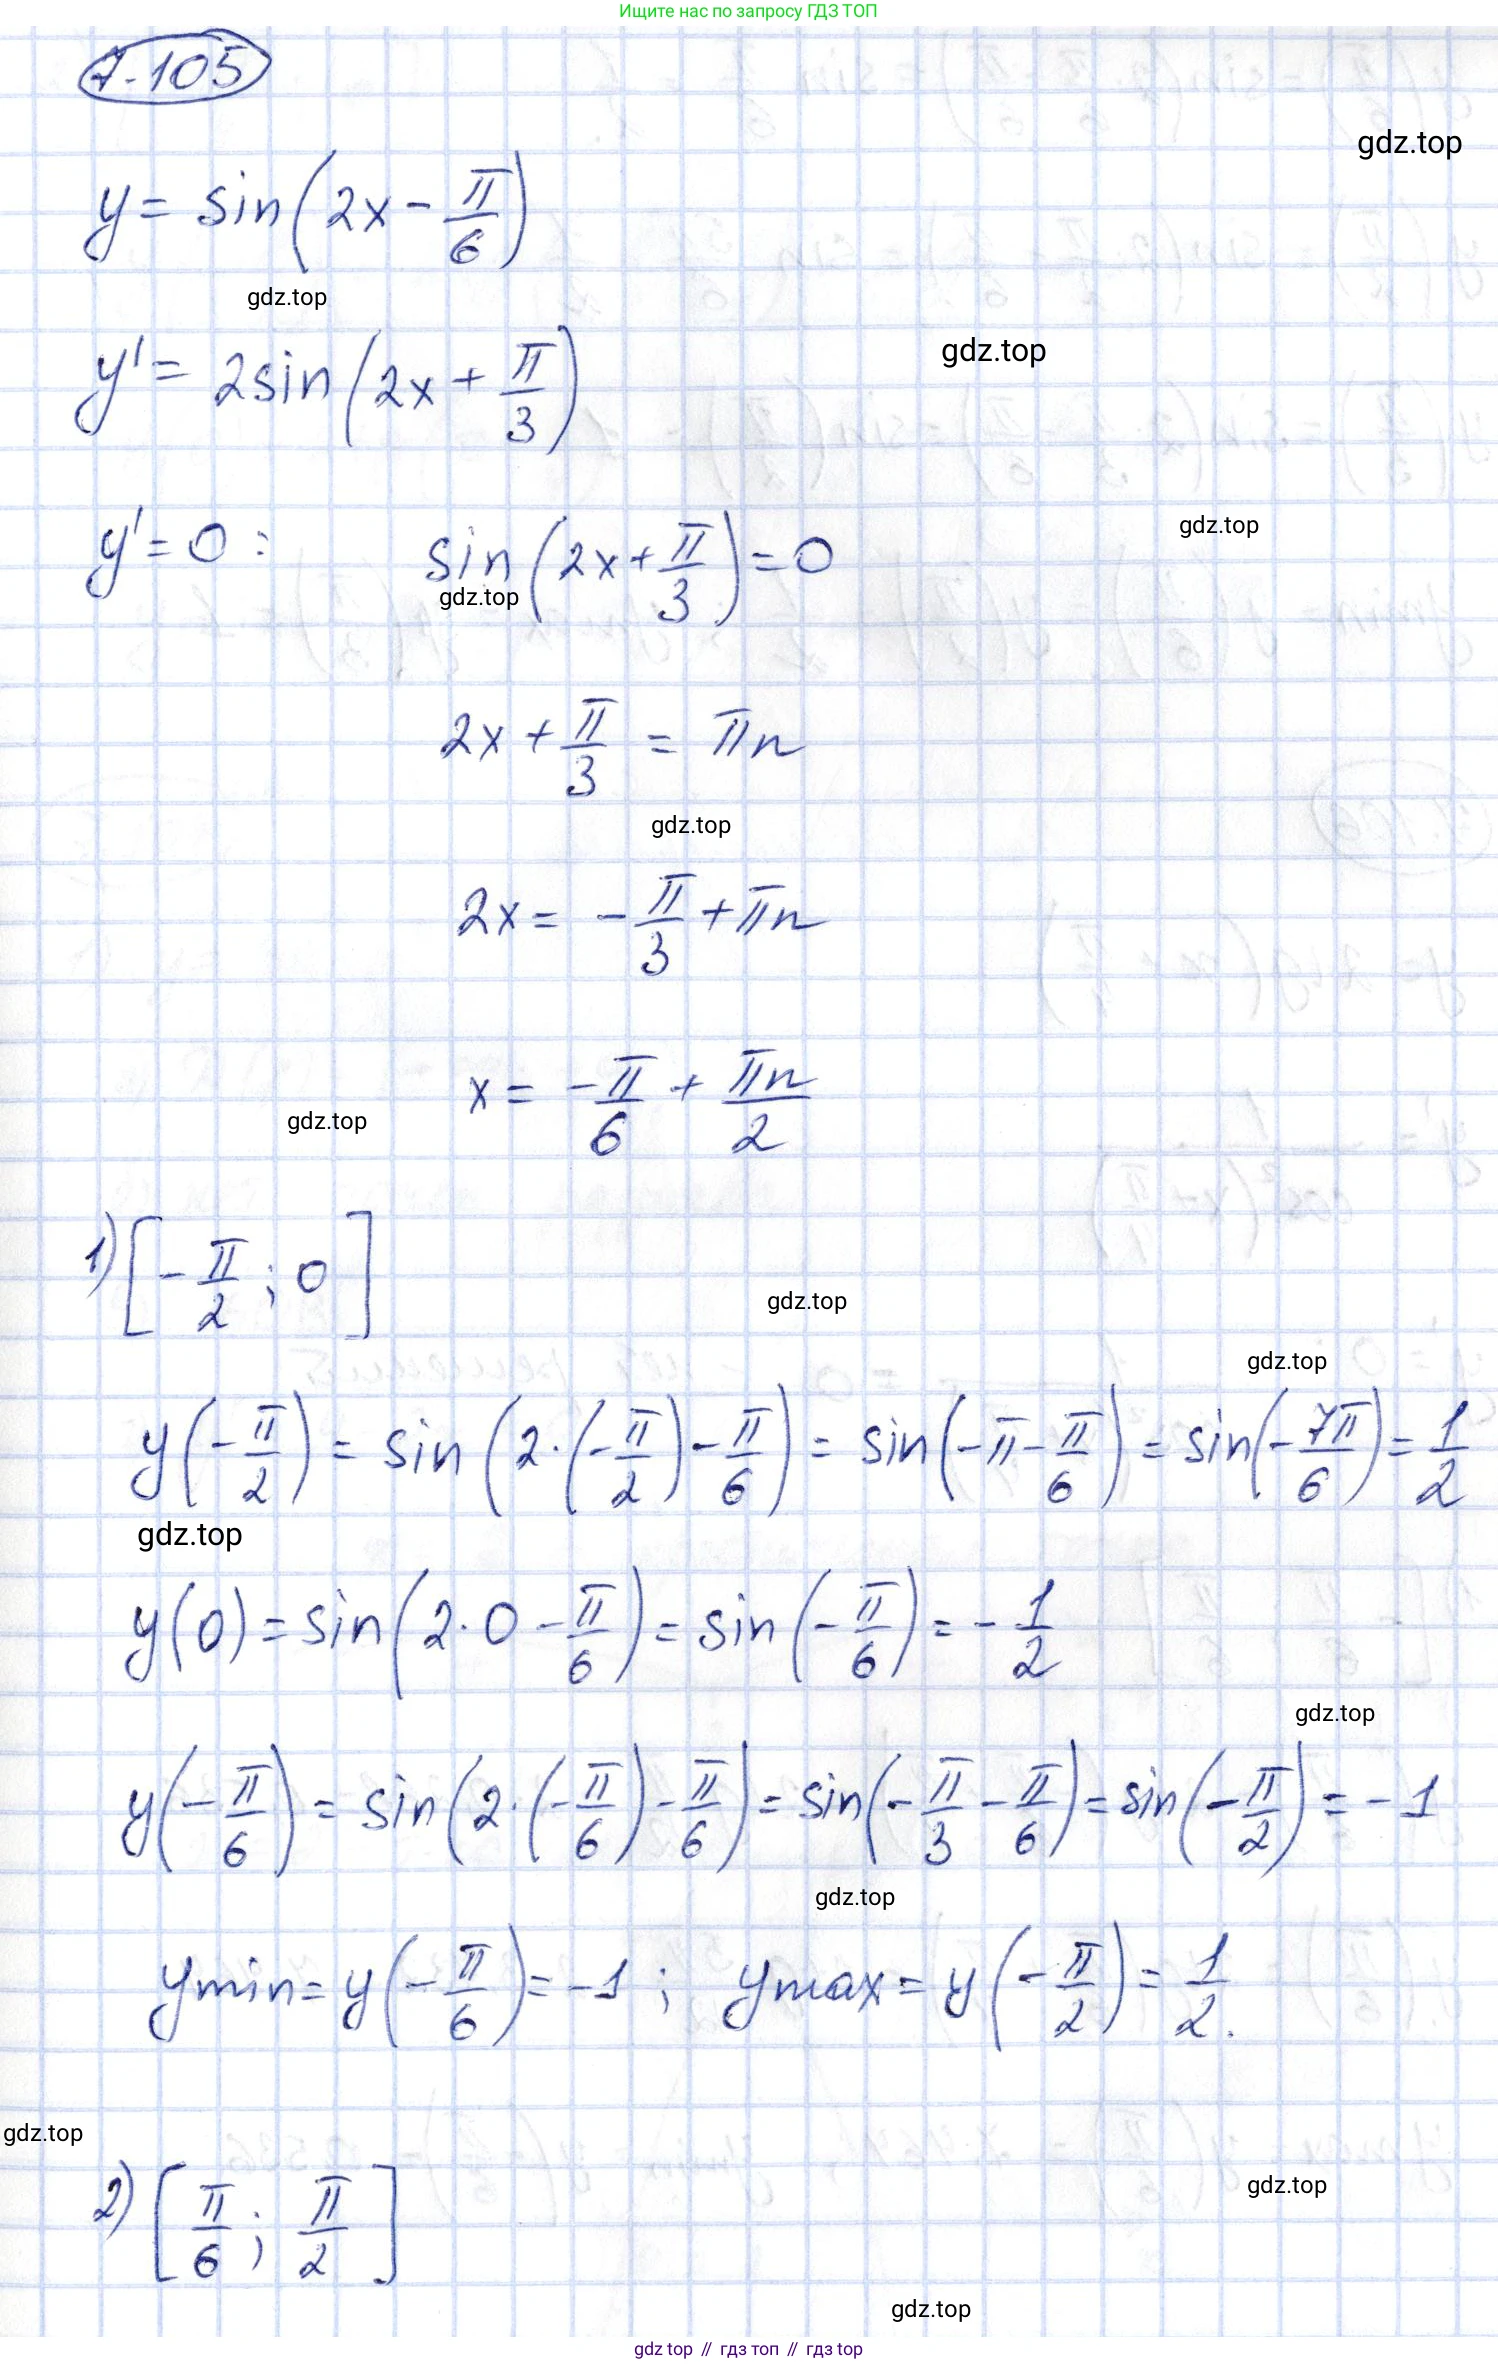 Ищите нас по запросу ГДЗ ТОП
7.105
gdz.top
y = sin(2x - π/6)
gdz.top
y' = 2sin(2x + π/3)
gdz.top
y' = 0 : sin(2x + π/3) = 0
gdz.top
gdz.top
2x + π/3 = πn
gdz.top
2x = -π/3 + πn
x = -π/6 + πn/2
gdz.top
1) [-π/2 ; 0]
gdz.top
gdz.top
y(-π/2) = sin(2·(-π/2) - π/6) = sin(-π - π/6) = sin(-7π/6) = 1/2
gdz.top
y(0) = sin(2·0 - π/6) = sin(-π/6) = -1/2
gdz.top
y(-π/6) = sin(2·(-π/6) - π/6) = sin(-π/3 - π/6) = sin(-π/2) = -1
gdz.top
ymin = y(-π/6) = -1 ; ymax = y(-π/2) = 1/2.
gdz.top
2) [π/6 ; π/2]
gdz.top
gdz.top
gdz top // гдз топ // гдз top